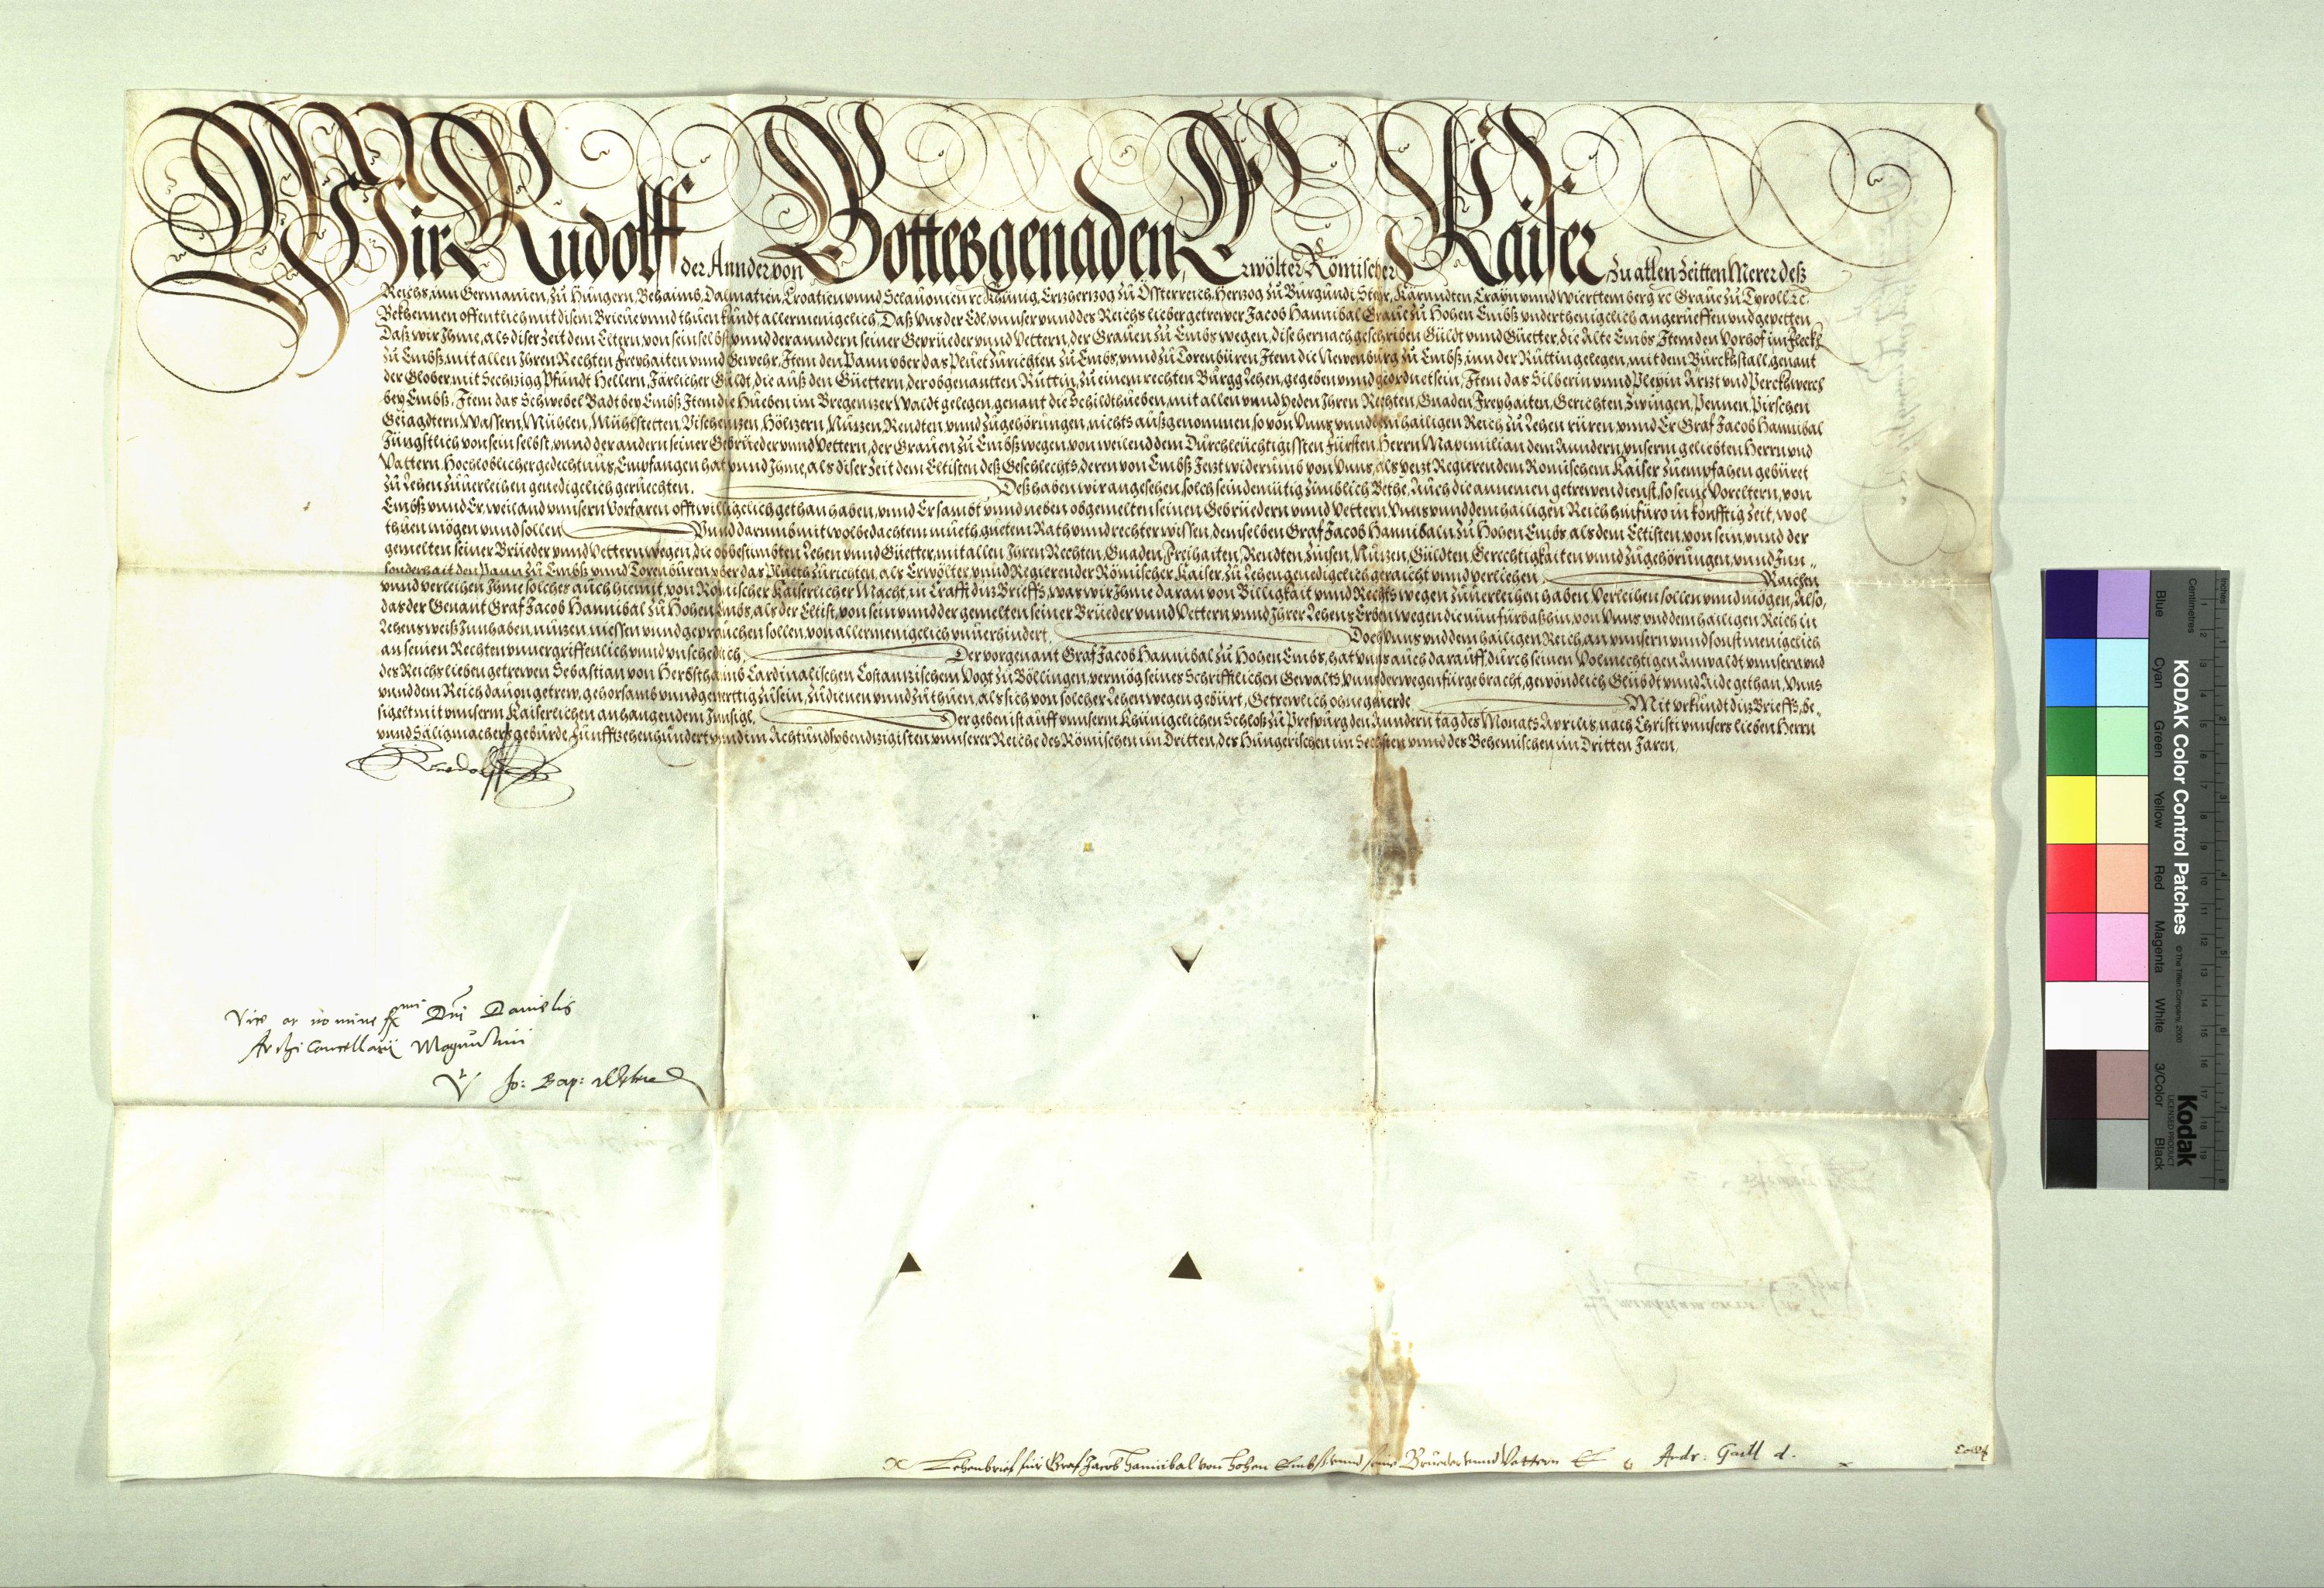 Wir Rudolff der Annder von Gottes genaden Erwölter Römischer Kaiser zu allen Zeitten Merer deß
Reichs, inn Germanien, zu Hungern, Behaimb, Dalmatien, Croatien vnnd Sclauonien rc Khünig, Ertzhertzog zu Össterreich, Hertzog zu Burgundi Steyr, Kärnndten Crayn vnnd Wierttemberg rc Graue zu Tyroll rc.
Bekhennen offentlich mit disem Brieue vnnd thuen kundt allermenigelich, Daß vns der Edl, vnnser vnnd des Reichs lieber getrewer Jacob Hannibal Graue zu Hohen Embß vnderthenigelich angerueffen vnd gepetten
Daß wir Jhme, als diser Zeit dem Eltern, von sein selbst vnnd der anndern seiner Geprüeder vnnd Vettern, der Grauen zu Embs wegen, dise hernach geschriben Güldt vnnd Güetter, die Alte Embs, Jtem den Vorhof im Fleckh
zu Embß, mit allen Jhren Rechten Freyhaiten vnnd Gewehr, Jtem den Pann vber das Pluet zurichten zu Embs, vnnd zu Torenbüren Jtem die Newenburg zu Embß, inn der Rüttin gelegen, mit dem Burckhstall, genant
der Glober, mit Sechtzigg Pfundt Hellern, Järlicher Güldt, die auß den Güettern, der obgenantten Rüttin, zu einem rechten Burgg Lehen, gegeben vnnd geordnet sein, Jtem das Silberin vnnd Pleyin Ärtzt vnd Perckhwerch
bey Embß, Jtem das Schwebel Badt bey Embß Jtem die Hueben im Bregentzer Waldt gelegen, genant die Schildthueben, mit allen vnnd yeden Jhren Rechten, Gnaden Freyhaiten, Gerichten, Zwingen, Pennen, Pirschen
Gejagdtern, Wassern, Mühlen, Mühlstetten, Vischentzen, Höltzern, Nutzen, Rendten, vnnd zugehörungen, nichts außgenommen, so von Vnns vnnd dem hailigen Reich zu Lehen rüren, vnnd Er Graf Jacob Hannibal
Jungstlich von sein selbst, vnnd der andern seiner Gebrüeder vnnd Vettern, der Grauen zu Embß wegen, von weilend dem Durchleuchtigissten Fürsten, Herrn Maximilian dem Anndern, vnserm geliebten Herrn vnd
Vattern, Hochloblicher gedechtnus, Empfangen hat vnnd Jhme, als diser Zeit dem Eltisten deß Geschlechts, deren von Embß Jetzt widerumb von Vnns, als yetzt Regierendem Römischem Kaiser zu empfahen gebüret
zu Lehen zuuerleihen genedigelich geruechten. Deß haben wir angesehen, solch sein demütig zimblich Bethe, Auch die annemen getrewen dienst, so seine Voreltern, von
Embß vnnd Er, weiland vnnsern Vorfaren offt willigelich gethan haben, vnnd Er sambt vnnd neben obgemelten seinen Gebrüedern vnnd Vettern Vnns vnnd dem hailigen Reich hinfüro in konfftig Zeit, wol
thuen mögen vnnd sollen Vnnd darumb mit wolbedachtem mueth, guetem Rath vnnd rechter wissen, demselben Graf Jacob Hannibaln zu Hohen Embs als dem Eltisten, von sein, vnnd der
gemelten seiner Brüeder vnnd Vettern wegen, die obbestimbten Lehen vnnd Güetter, mit allen Jhren Rechten, Gnaden, Freihaiten, Rendten, Zinsen, Nutzen, Gülden, Gerechtigkaiten vnnd zugehörungen, vnnd Jnn-
sonderhait den Pann zu Embß vnnd Torenbüren vber das Plueth zurichten, als Erwölter, vnnd Regierender Römischer Kaiser, zu Lehen genedigelich geraicht vnnd verliehen Raichen
vnnd verleihen Jhme solches auch hiemit, von Römischer Kaiserlicher Macht, in Crafft ditz Brieffs, was wir Jhme daran von Billigkait vnnd Rechts wegen zuuerleihen haben, Verleihen sollen vnnd mögen, Also,
das der Genant Graf Jacob Hannibal zu Hohen Embs, als der Eltist, von sein vnnd der gemelten seiner Brüeder vnnd Vettern vnnd Jhrer Lehens Erben wegen die nun fürbaßhin, von Vnns vnd dem hailigen Reich in
Lehens weiß Jnnhaben, nutzen, niessen vnnd geprauchen sollen, von allermenigelich vnuerhindert, Doch Vnns vnd dem hailigen Reich, an vnnsern vnnd sonst menigelich
an seinen Rechten vnuergriffenlich vnnd vnschedlich, Der vorgenant Graf Jacob Hannibal zu Hohen Embs, hat vnns auch darauff, durch seinen Volmechtigen Anwaldt vnnsern vnd
des Reichs lieben getrewen Sebastian von Herbsthaimb Cardinalischen Costantzischem Vogt zu Böllingen, vermög seines Schrifftlichen Gewalts, vnns derwegen fürgebracht, gewöndlich Glübdt vnnd Aide gethan, Vnns
vnnd dem Reich dauon getrew, gehorsamb vnnd gewerttig zu sein, zu dienen vnnd zu thuen, als sich von solcher Lehen wegen gebürt, Getrewlich ohne geuerde Mit vrkundt ditz Brieffs, be-
sigelt mit vnnserm Kaiserlichen anhangendem Jnnsigl, Der geben ist auff vnnserm Khünigclichen Schloß zu Prespurg den Anndern tag des Monats Aprilis, nach Christi vnnsers lieben Herrn
vnnd Säligmachers geburde, Fünfftzehenhundert vnnd im Achtundsybendtzigisten vnnserer Reiche des Römischen im Dritten, des Hungerischen im Sechsten vnnd des Behemischen im Dritten Jaren,
Ruedolff
Vice ac nomine Rmi Dni Danielis
Archicancellarij Moguntini
Vt Jo: Bap: Weber
Lehenbrief für Graf Jacob Hannibal von Hohen Embs vnnd seine Brüeder vnnd Vattern
Andr: Gaill d.